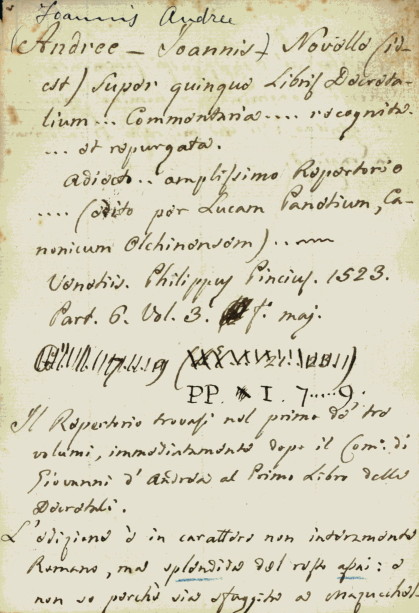 Joannis Andree
(Andree – Joannis) Novella (id
est) Super quinque Libris Decreta-
lium ... Commentaria .... recognita.
... et repurgata.
Adiecto .. amplissimo Repertorio
.... (edito per Lucam Panetium, Ca-
nonicum Olchinensem) ..
Venetiis. Philippus Pincius. 1523.
Part. 6. Vol. 3. f.° maj.
PP. I. 7.....9.
Il Repertorio trovasi nel primo de' tre
volumi, immediatamente dopo il Com. di
Giovanni d' Andrea al Primo Libro delle
Decretali.
L'edizione è in carattere non interamente
Romano, ma splendida del resto assai: e
non so perchè sia sfuggita a Mazuchel.